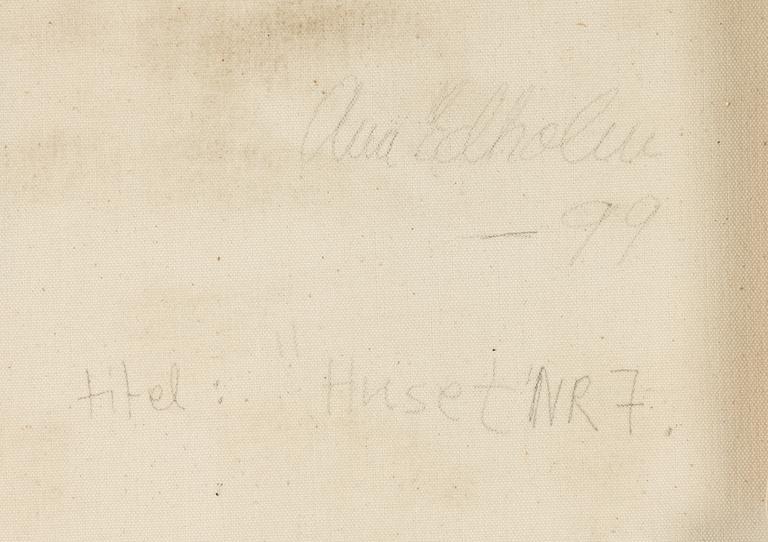 Ana Edholm
— 99
titel : "Huset" NR 7.